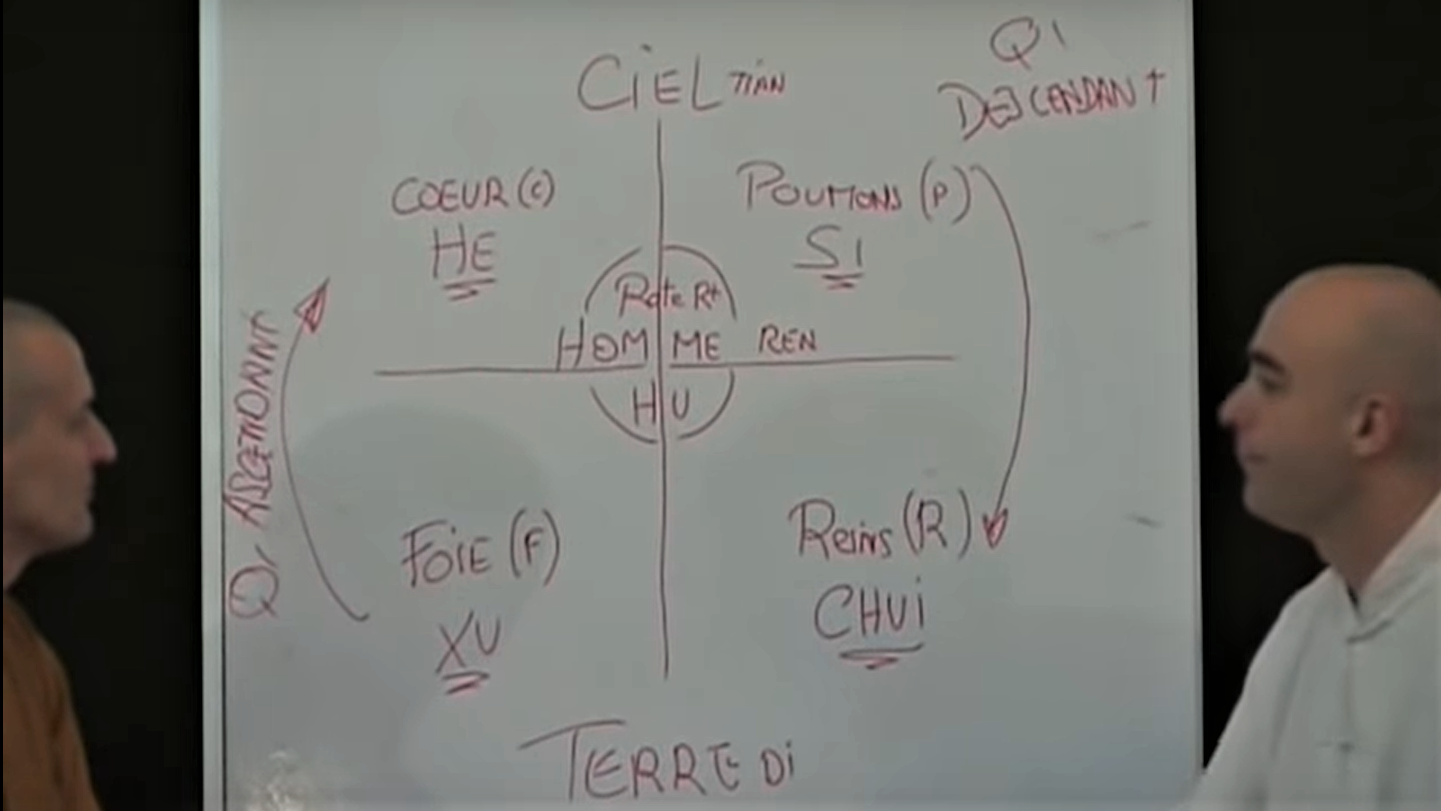 CiEL TiAN
Qi
DESCENDANT
COEUR (C)
HE
POUMONS (P)
Si
Rate Rt
HOMME REN
HU
Qi ASCETIONNT
FOiE (F)
XU
Reins (R)
CHUi
TERRE Di